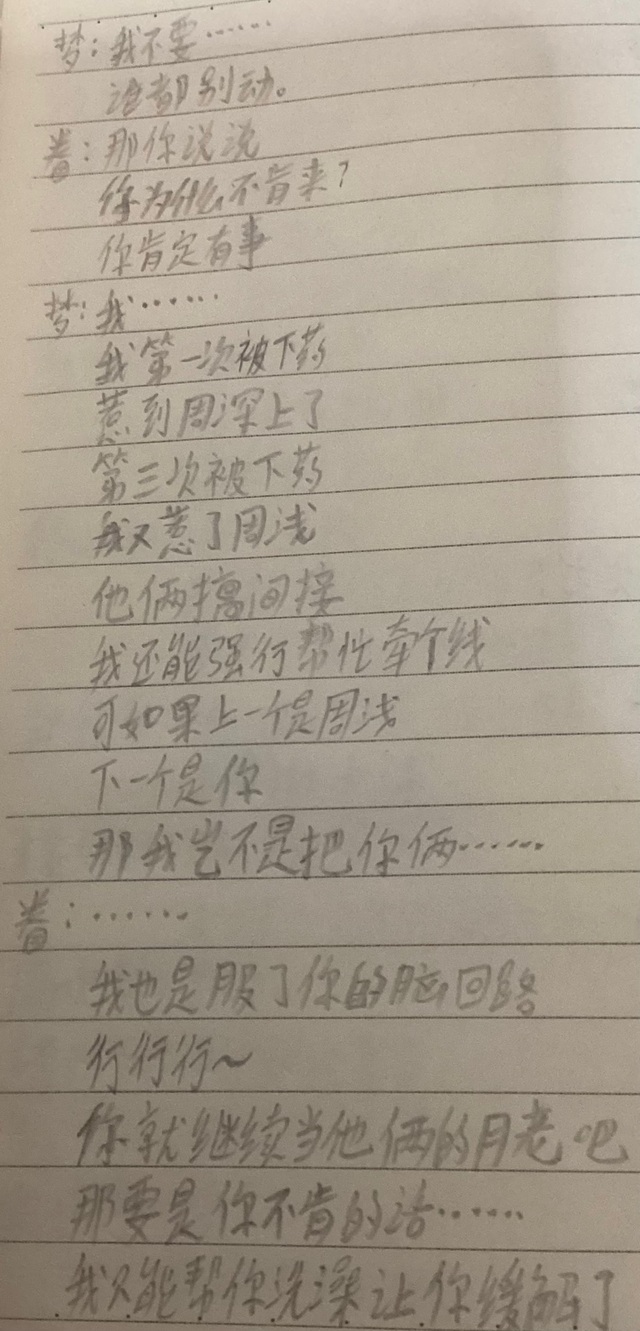 梦：我不要……
谁都别动。
眷：那你说说
你为什么不肯来？
你肯定有事
梦：我……
我第一次被下药
惹到周深上了
第三次被下药
我又惹了周浅
他俩搞间接
我还能强行帮忙牵个线
可如果上一个是周浅
下一个是你
那我岂不是把你俩……
眷：……
我也是服了你的脑回路
行行行～
你就继续当他俩的月老吧
那要是你不肯的话……
我只能帮你洗澡让你缓解了